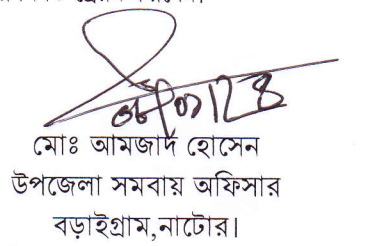 মোঃ আমজাদ হোসেন
উপজেলা সমবায় অফিসার
বড়াইগ্রাম,নাটোর।